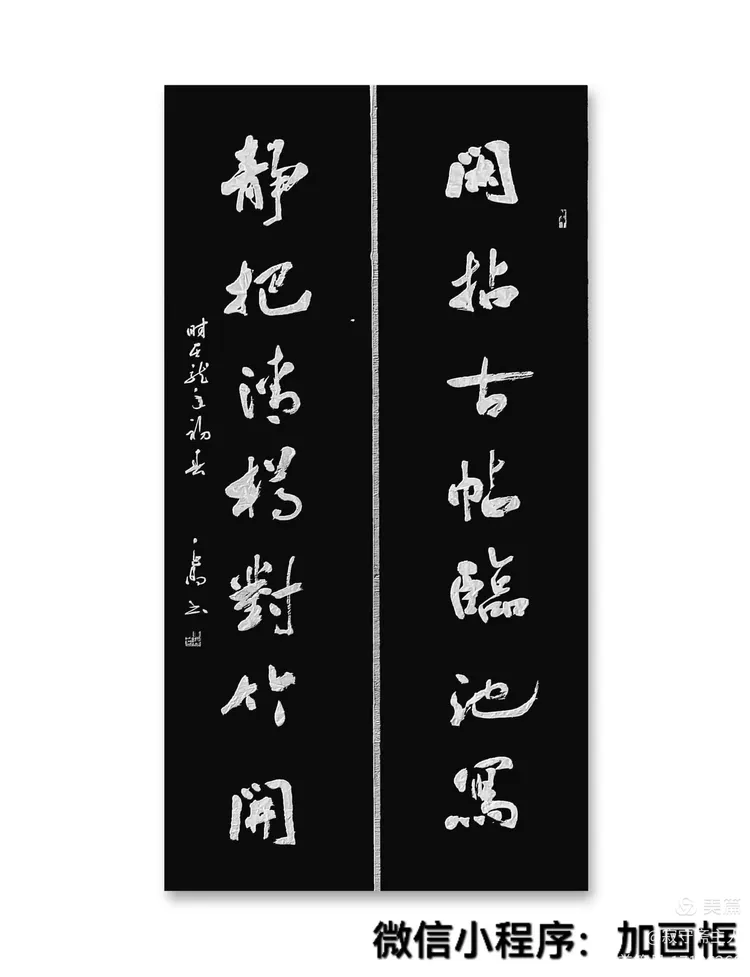 閑拈古帖臨池寫
靜把清樽對竹開
時在龍年初春
美篇
微信小程序：加画框